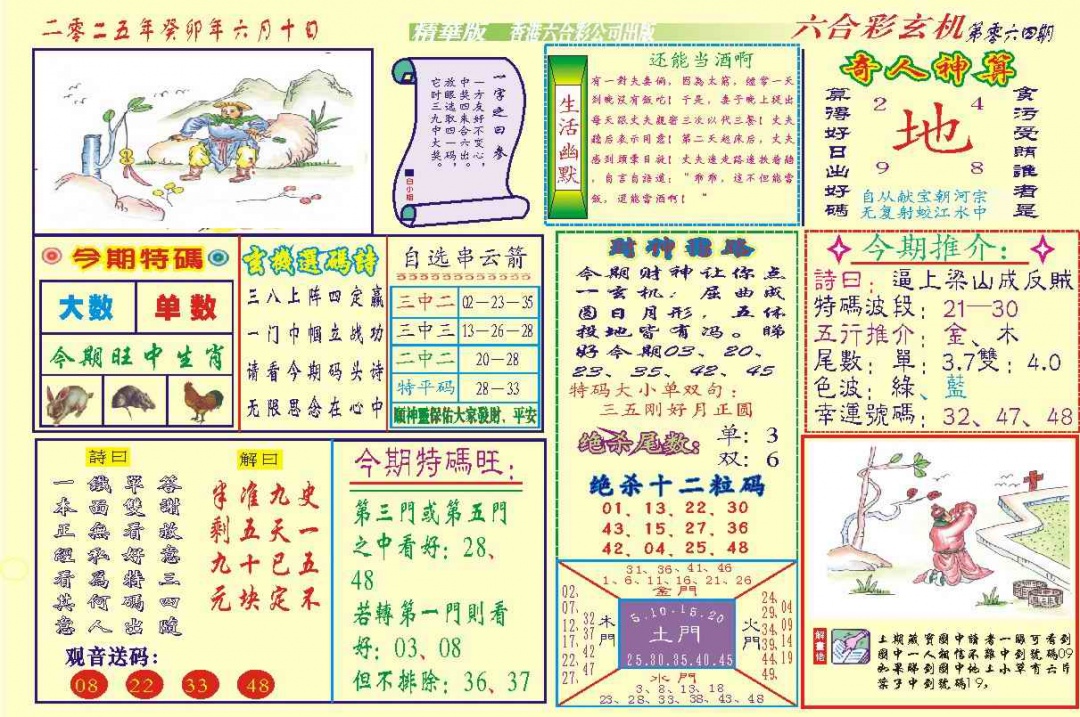 二零二五年癸卯年六月十日
精華版 香港六合彩公司出版
六合彩玄机 第零六四期
一字之曰参
一方友好不变心，
中奖四来合六出。
放眼选取四一码，
它时三九中大奖。
白小姐
生活幽默
还能当酒啊
有一對夫妻倆，因為太窮，經常一天
到晚没有飯吃！于是，妻子晚上提出
每天跟丈夫親密三次以代三餐！丈夫
聽后表示同意！第二天起床后，丈夫
感到頭暈目旋！丈夫邊走路邊扶着牆
，自言自語道："乖乖，這不但能當
飯，還能當酒啊！"
奇人神算
算得好日出好碼
2 4
地
9 8
貪污受賄誰者是
自从献宝朝河宗
无复射蛟江水中
今期特碼
大数 单数
今期旺中生肖
玄機選碼詩
三八上阵四定赢
一门巾帼立战功
请看今期码头诗
无限思念在心中
自选串云箭
三中二 02—23—35
三中三 13—26—28
二中二 20—28
特平码 28—33
順神靈保佑大家發財、平安
财神密路
今期财神让你点
一玄机：屈曲成
圆日月形，五体
投地皆有冯。睇
好今期03、20、
23、35、42、45
特码大小单双句：
三五刚好月正圆
绝杀尾数： 单：3
双：6
绝杀十二粒码
01、13、22、30
43、15、27、36
42、04、25、48
今期推介：
詩曰：逼上梁山成反賊
特碼波段：21—30
五行推介：金、木
尾數：單：3.7雙：4.0
色波：綠、藍
幸運號碼：32、47、48
詩曰
一本正經看其意
鐵面無私爲何人
單雙看好特碼出
答謝故意三四隨
解曰
半准九史
剩五天一
九十已五
元块定不
观音送码：
08 22 33 48
今期特碼旺：
第三門或第五門
之中看好：28、
48
若轉第一門則看
好：03、08
但不排除：36、37
31、36、41、46
1、6、11、16、21、26
金門
02、07、12、17、22、27、
32 37 42 47
木門
5.10.15.20
土門
25.30.35.40.45
火門
24、29、34、39、44、49、
04 09 14 19
水門
3、8、13、18
23、28、33、38、43、48
解畫偣
上期藏寶圖中讀者一睇可看到
圖中一人相信不難中到號碼09
如果睇到圖中地上小草有六片
葉子中到號碼19，